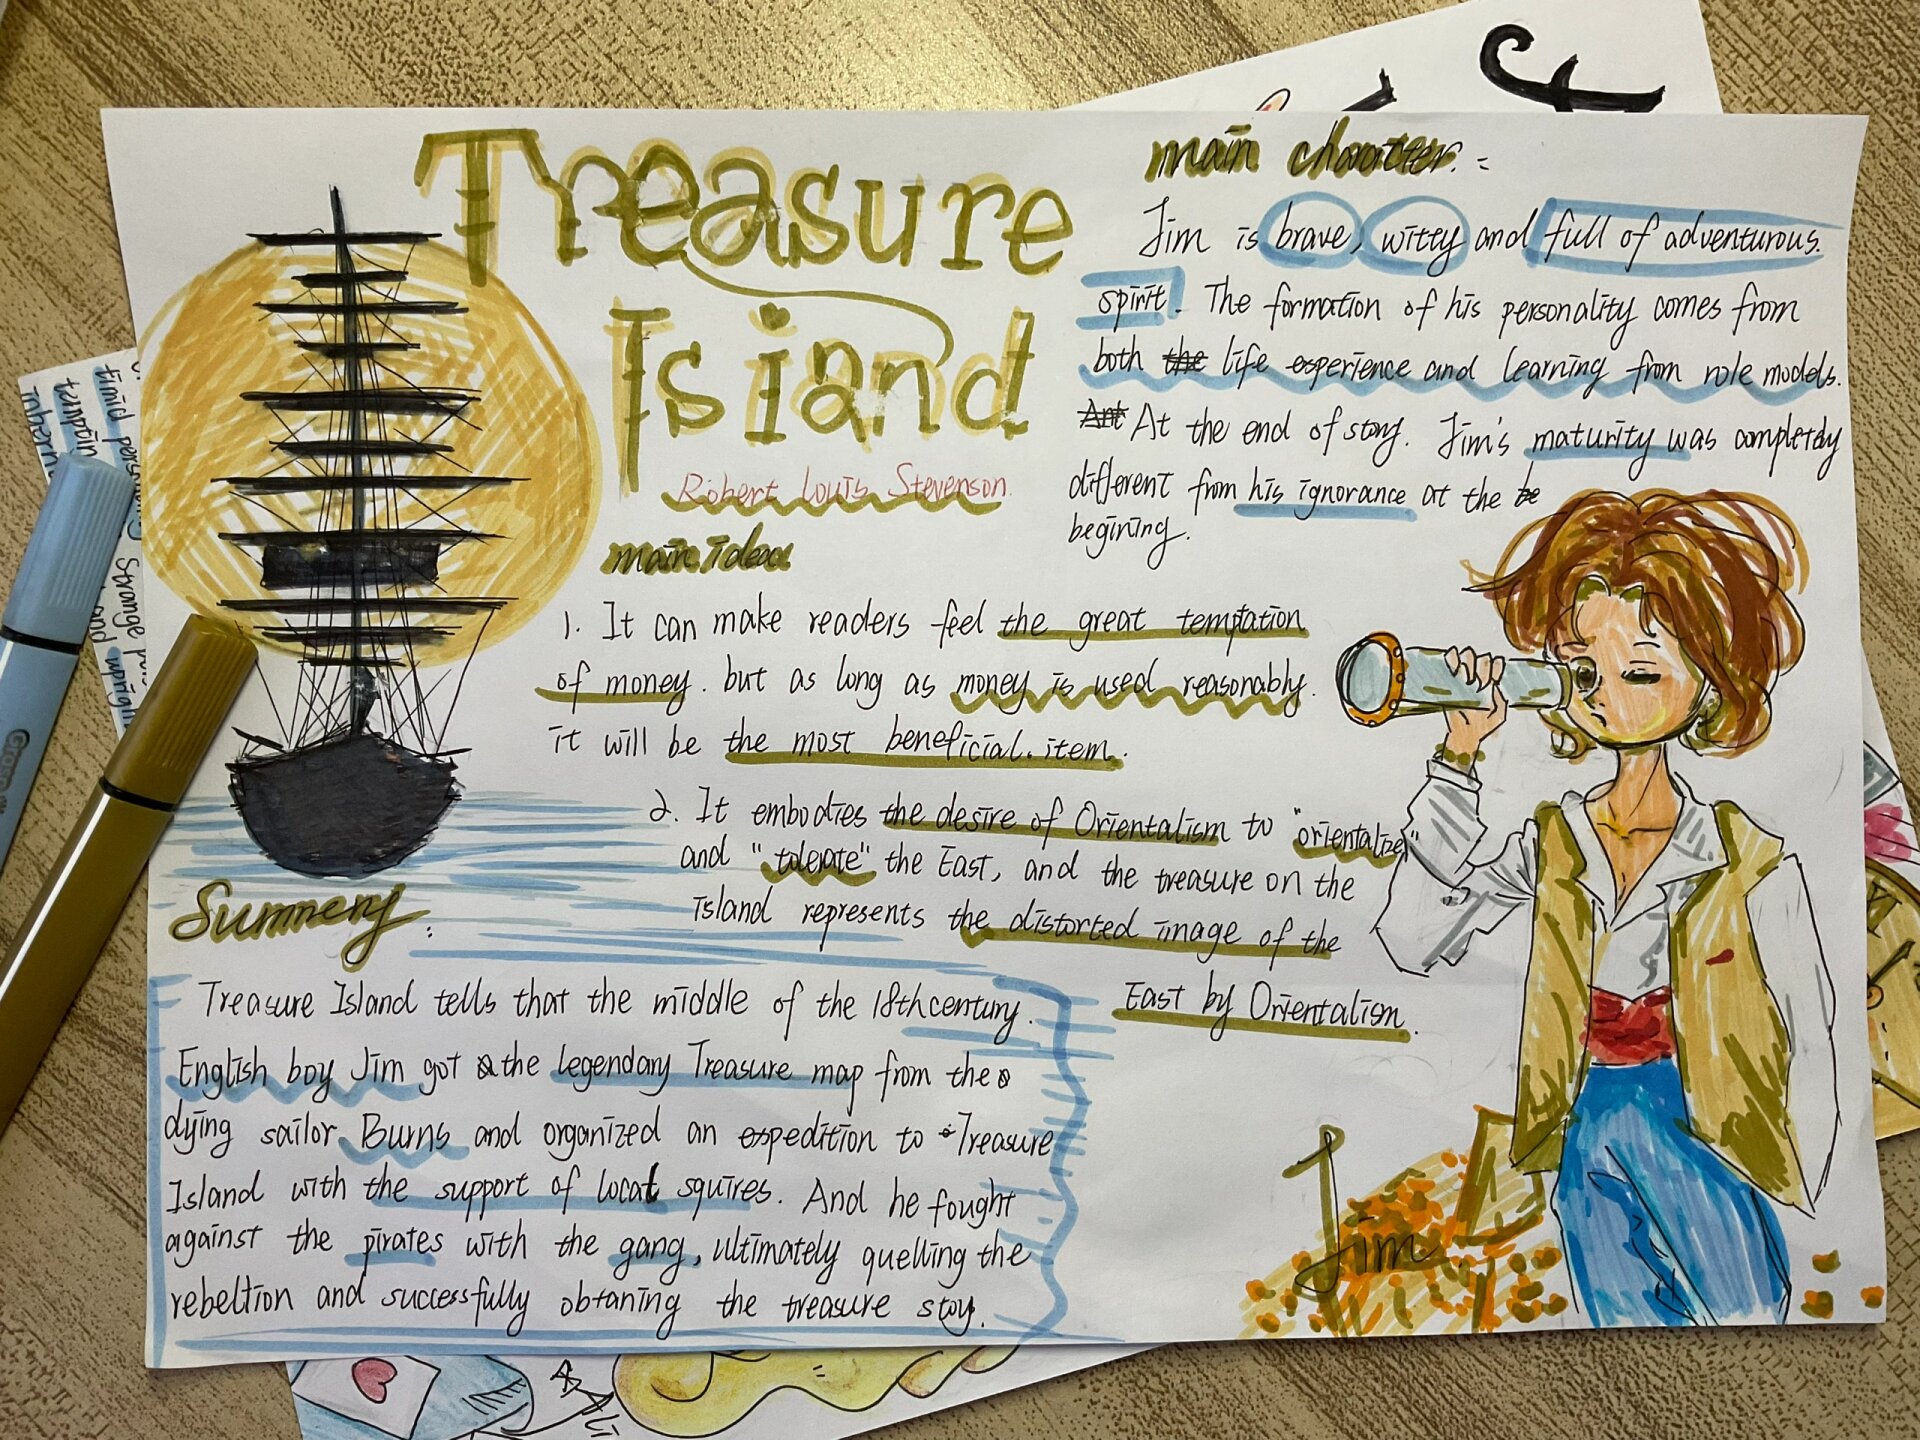 Treasure
Island
Robert Louis Stevenson
main idea
1. It can make readers feel the great temptation
of money. but as long as money is used reasonably.
it will be the most beneficial. item.
2. It embodies the desire of Orientalism to "orientalize"
and "tolerate" the East, and the treasure on the
island represents the distorted image of the
East by Orientalism.
main character. :
Jim is brave, witty and full of adventurous.
spirit. The formation of his personality comes from
both the life experience and learning from role models.
At the end of story. Jim's maturity was completely
different from his ignorance at the be
begining.
Summery :
Treasure Island tells that the middle of the 18th century.
English boy Jim got the legendary Treasure map from the
dying sailor Burns and organized an expedition to Treasure
Island with the support of local squires. And he fought
against the pirates with the gang, ultimately quelling the
rebeltion and successfully obtaning the treasure stoy.
Jim
timid personality
Strange
and upright